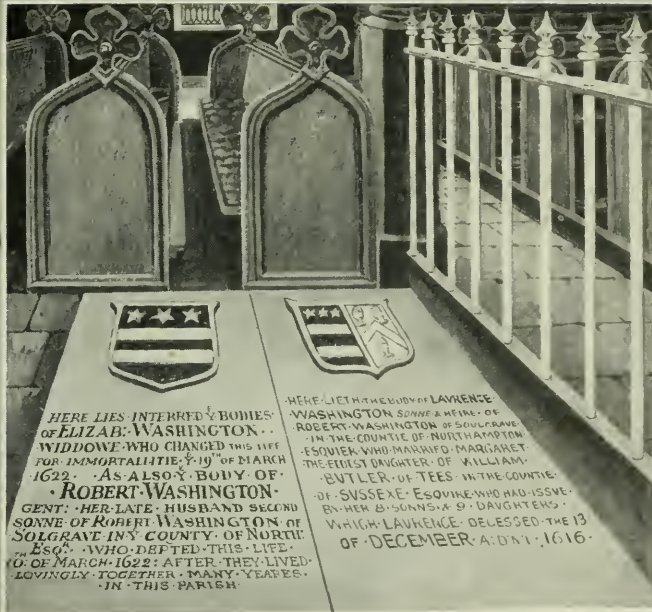 HERE LIES INTERRED Yᴱ BODIES
OF ELIZAB: WASHINGTON
WIDDOWE WHO CHANGED THIS LIFE
FOR IMMORTALLITIE Yᴱ 19ᵀᴴ OF MARCH
1622. AS ALSO Yᴱ BODY OF
ROBERT WASHINGTON
GENT: HER LATE HUSBAND SECOND
SONNE OF ROBERT WASHINGTON OF
SOLGRAVE IN Yᴱ COUNTY OF NORTH:
ESQᴿ WHO DEPTED THIS LIFE
OF MARCH 1622: AFTER THEY LIVED
LOVINGLY TOGETHER MANY YEARES
IN THIS PARISH
HERE LIETH THE BODY OF LAVRENCE
WASHINGTON SONNE & HEIRE OF
ROBERT WASHINGTON OF SOULGRAVE
IN THE COUNTIE OF NORTHAMPTON
ESQUIER WHO MARRIED MARGARET
THE ELDEST DAUGHTER OF WILLIAM
BUTLER OF TEES IN THE COUNTIE
OF SUSSEXE ESQUIRE WHO HAD ISSVE
BY HER 8 SONNS & 9 DAUGHTERS
WHICH LAVRENCE DECESSED THE 13
OF DECEMBER A: DNI: 1616